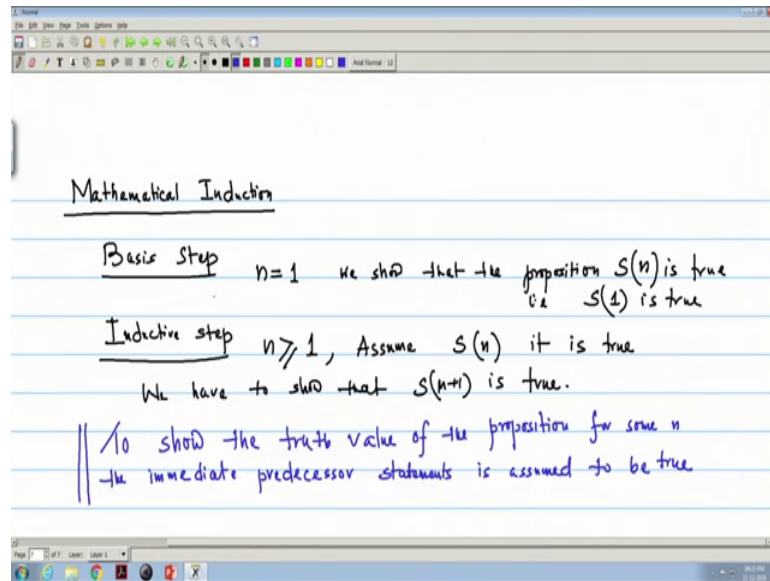 Journal
File Edit View Page Tools Options Help
Arial Normal 12
Mathematical Induction
Basis Step n=1 We show that the proposition S(n) is true
i.e S(1) is true
Inductive step n ⩾ 1, Assume S(n) it is true
We have to show that S(n+1) is true.
To show the truth value of the proposition for some n
the immediate predecessor statements is assumed to be true
Page 7 of 7 Layer: Layer 1